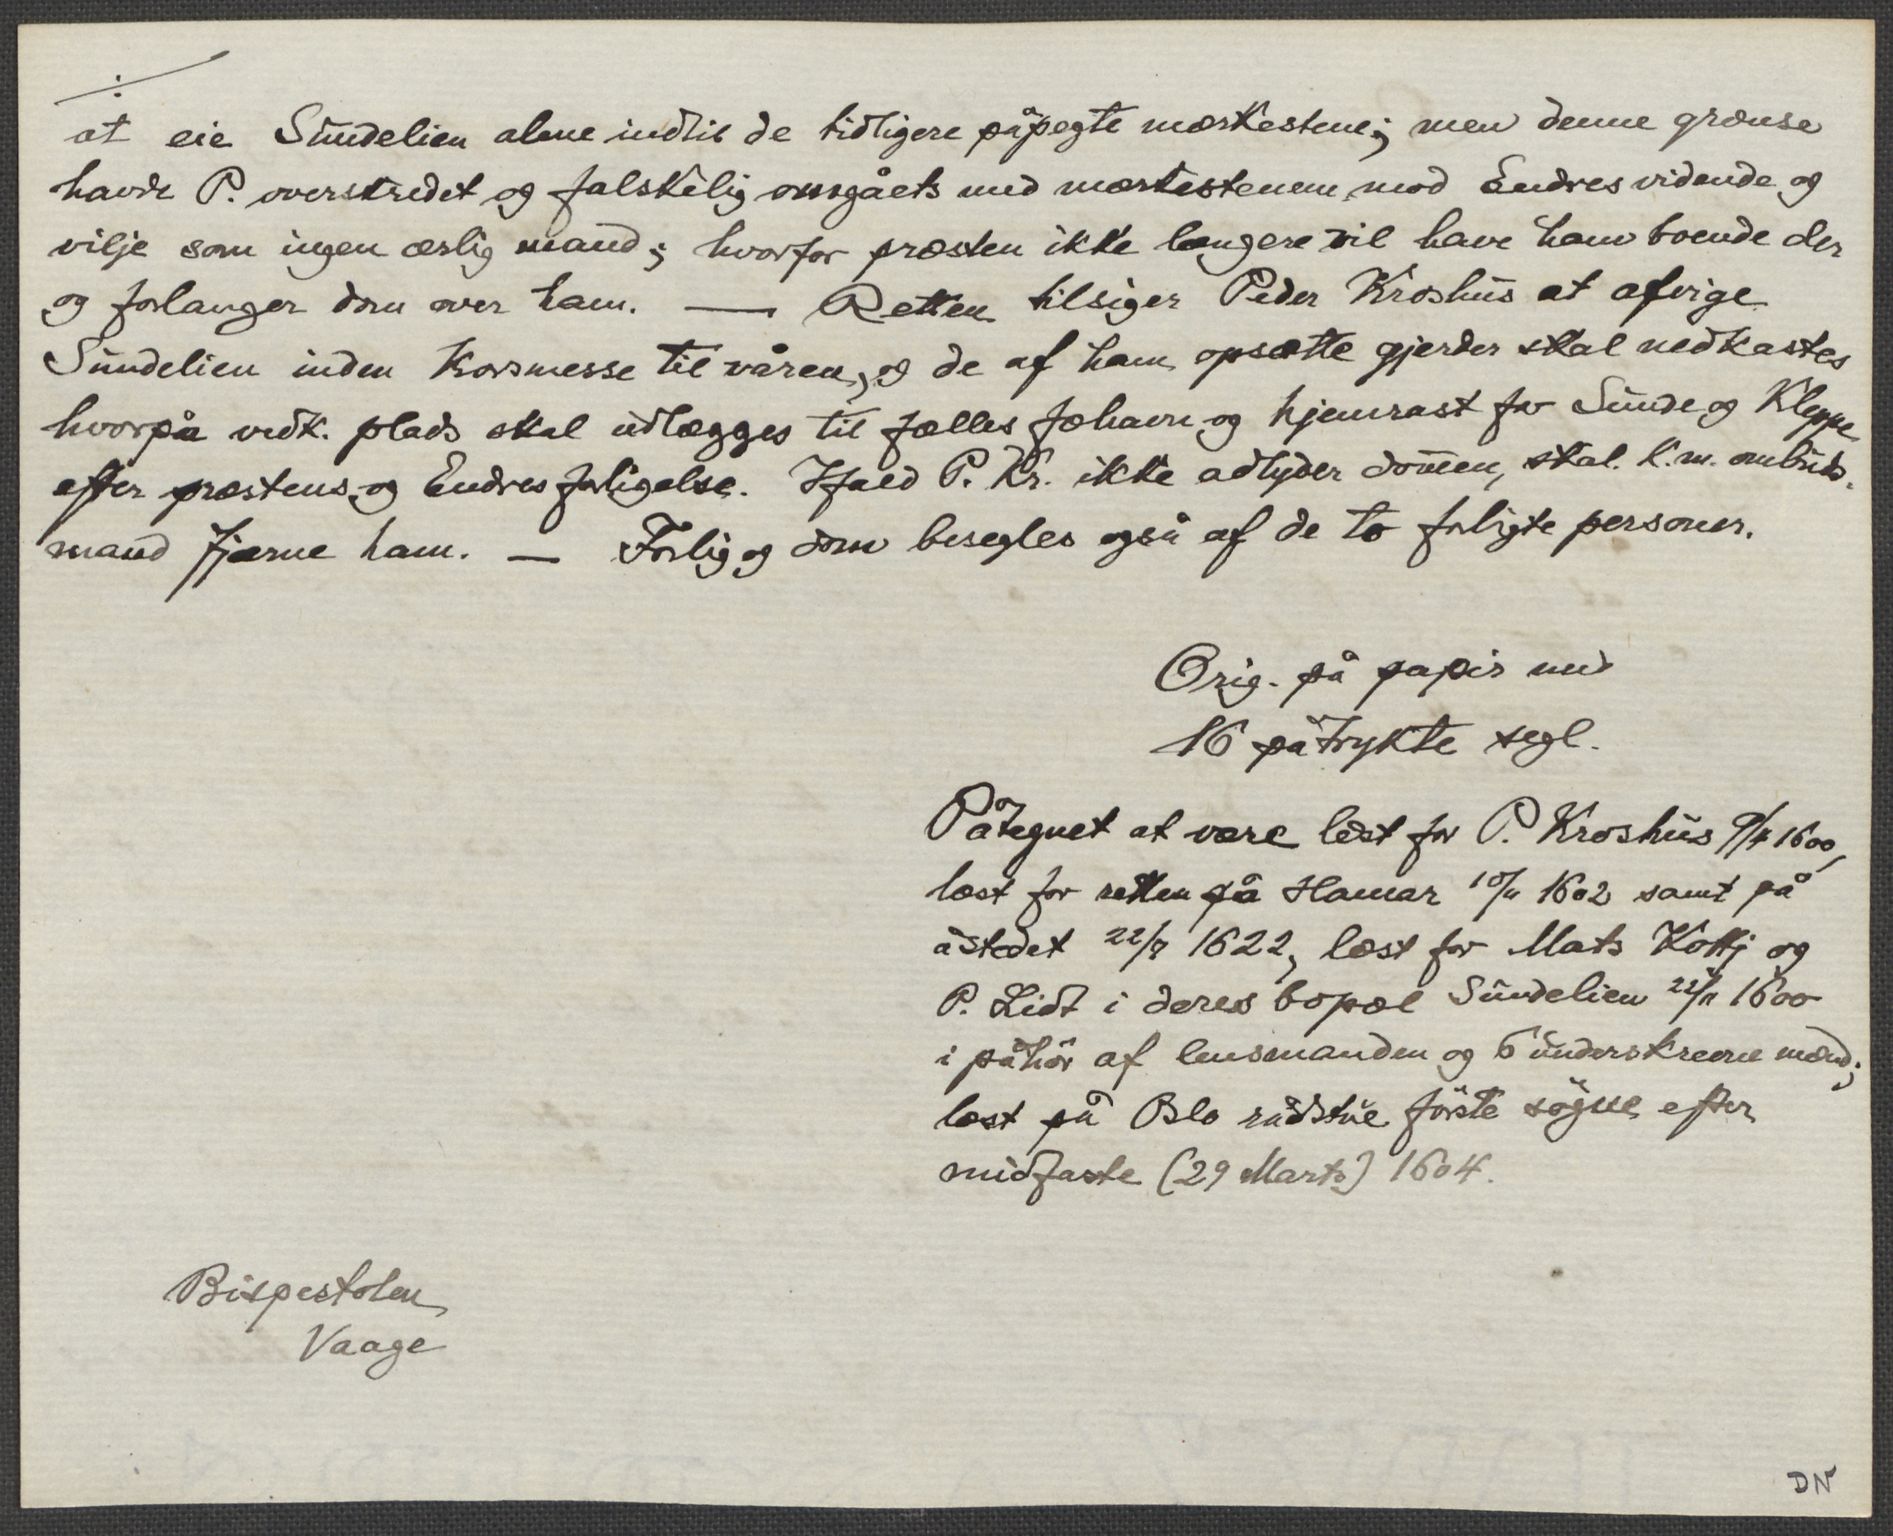 ./.
at eie Sundelien alene indtil de tidligere påpegte merkestene; men denne grænse
havde P. overskredet og falskelig omgåets med merkestenene mod Endres vidende og
vilje som ingen ærlig mand; hvorfor præsten ikke længere vil have ham boende der
og forlanger dom over ham. — Retten tilsiger Peder Kroshus at afvige
Sundelien inden Korsmesse til våren, og de af ham opsætte gjerder skal nedkastes
hvorpå vedk. plads skal udlægges til fælles fæhavn og hjemrast for Sunde og Kleppe
efter præstens og Endres forligelse. Ifald P. Kr. ikke adlyder dommen, skal k. m. ombuds-
mand fjærne ham. — Forlig og dom besegles også af de to forligte personer.
Orig. på papir med
16 påtrykte segl.
Påtegnet at være læst for P. Kroshus 9/4 1600,
læst for retten på Hamar 10/11 1602 samt på
åstedet 22/7 1622, læst for Mats Kottj og
P. Lidt i deres bopæl Sundelien 22/11 1600
i påhör af lensmanden og 6 underskrevne mænd;
læst på Oslo rådstue förste sögne efter
midfaste (29 Marts) 1604.
Bispestolen
Vaage
DN